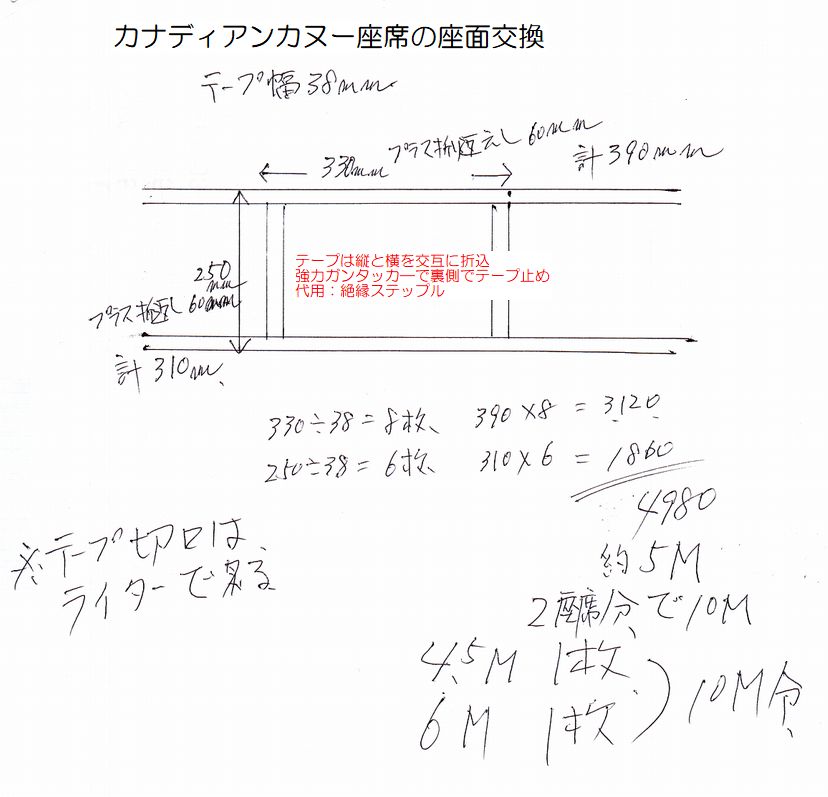 カナディアンカヌー座席の座面交換
テープ幅38mm
330mm プラス折返えし60mm 計390mm
テープは縦と横を交互に折込
強力ガンタッカーで裏側でテープ止め
代用：絶縁ステップル
250mm
プラス折返し60mm
計310m
330÷38=8枚、 390×8 = 3,120
250÷38=6枚、 310×6 = 1860
4980
約5M
※テープ切口は、
ライターで
2座席分で10M
4.5M 1枚
6M 1枚
10M分